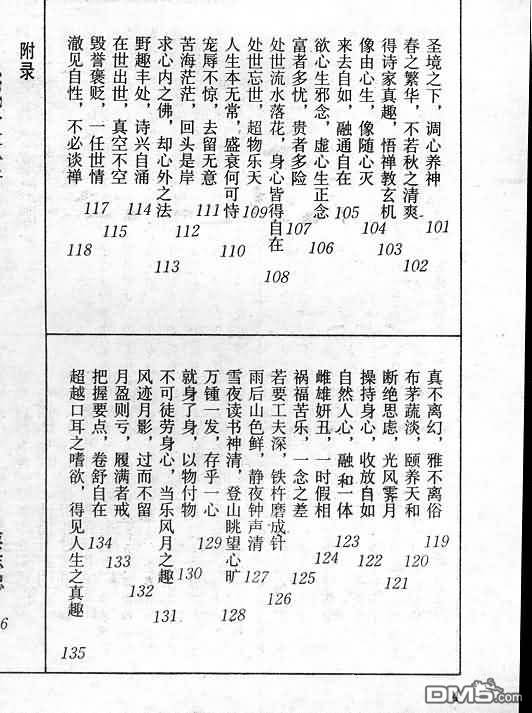 圣境之下，调心养神 101
春之繁华，不若秋之清爽 102
得诗家真趣，悟禅教玄机 103
像由心生，像随心灭 104
来去自如，融通自在 105
欲心生邪念，虚心生正念 106
富者多忧，贵者多险 107
处世流水落花，身心皆得自在 108
处世忘世，超物乐天 109
人生本无常，盛衰何可恃 110
宠辱不惊，去留无意 111
苦海茫茫，回头是岸 112
求心内之佛，却心外之法 113
野趣丰处，诗兴自涌 114
在世出世，真空不空 115
毁誉褒贬，一任世情 117
澈见自性，不必谈禅 118
真不离幻，雅不离俗 119
布茅蔬淡，颐养天和 120
断绝思虑，光风霁月 121
操持身心，收放自如 122
自然人心，融和一体 123
雌雄妍丑，一时假相 124
祸福苦乐，一念之差 125
若要工夫深，铁杵磨成针 126
雨后山色鲜，静夜钟声清 127
雪夜读书神清，登山眺望心旷 128
万锺一发，存乎一心 129
就身了身，以物付物 130
不可徒劳身心，当乐风月之趣 131
风迹月影，过而不留 132
月盈则亏，履满者戒 133
把握要点，卷舒自在 134
超越口耳之嗜欲，得见人生之真趣 135
附录
6
DM5.com